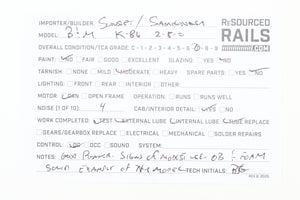 IMPORTER/BUILDER: SUNSET /
RESOURCED RAILS .COM
MODEL: B&M K-8b 2-8-0
OVERALL CONDITION/TCA GRADE C-1-2-3-4-5-6-7-8-9
PAINT: NO FAIR GOOD EXCELLENT GLAZING YES NO
TARNISH: NONE MILD MODERATE HEAVY SPARE PARTS: YES NO
LIGHTING: FRONT REAR INTERIOR OTHER:
MOTOR: CAN OPEN FRAME OPERATION: RUNS RUNS WELL
NOISE (1 OF 10) 4 CAB/INTERIOR DETAIL: YES NO
WORK COMPLETED: TEST EXTERNAL LUBE INTERNAL LUBE TUBE REPLACE
GEARS/GEARBOX REPLACE ELECTRICAL MECHANICAL SOLDER REPAIRS
CONTROL: DC DCC SOUND SYSTEM:
NOTES: GOOD RUNNER. SIGNS OF MODEST USE - OB & FOAM
SOLID EXAMPLE OF THE MODEL TECH INITIALS: